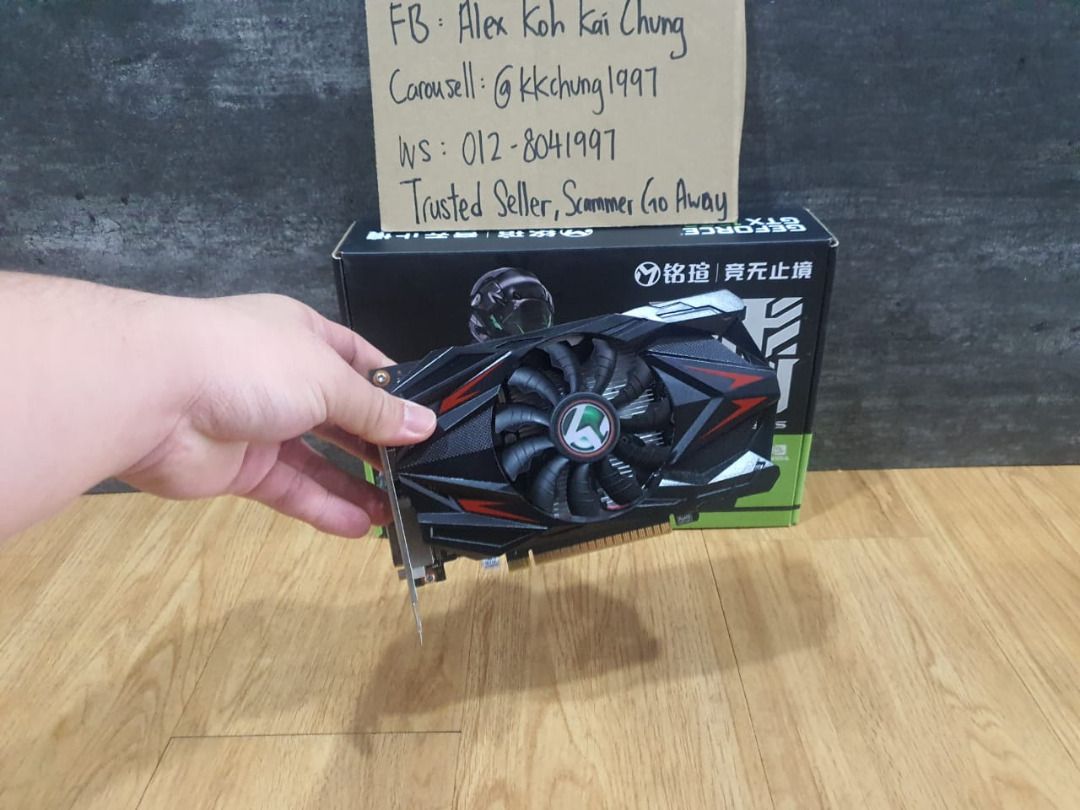 FB: Alex Koh Kai Chung
Carousell: @kkchung1997
WS: 012-8041997
Trusted Seller, Scammer Go Away
GEFORCE GTX
铭瑄 | 竞无止境
铭瑄 | 竞无止境